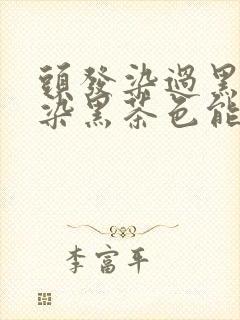 頭發染過黑
染黑茶色能
李富平